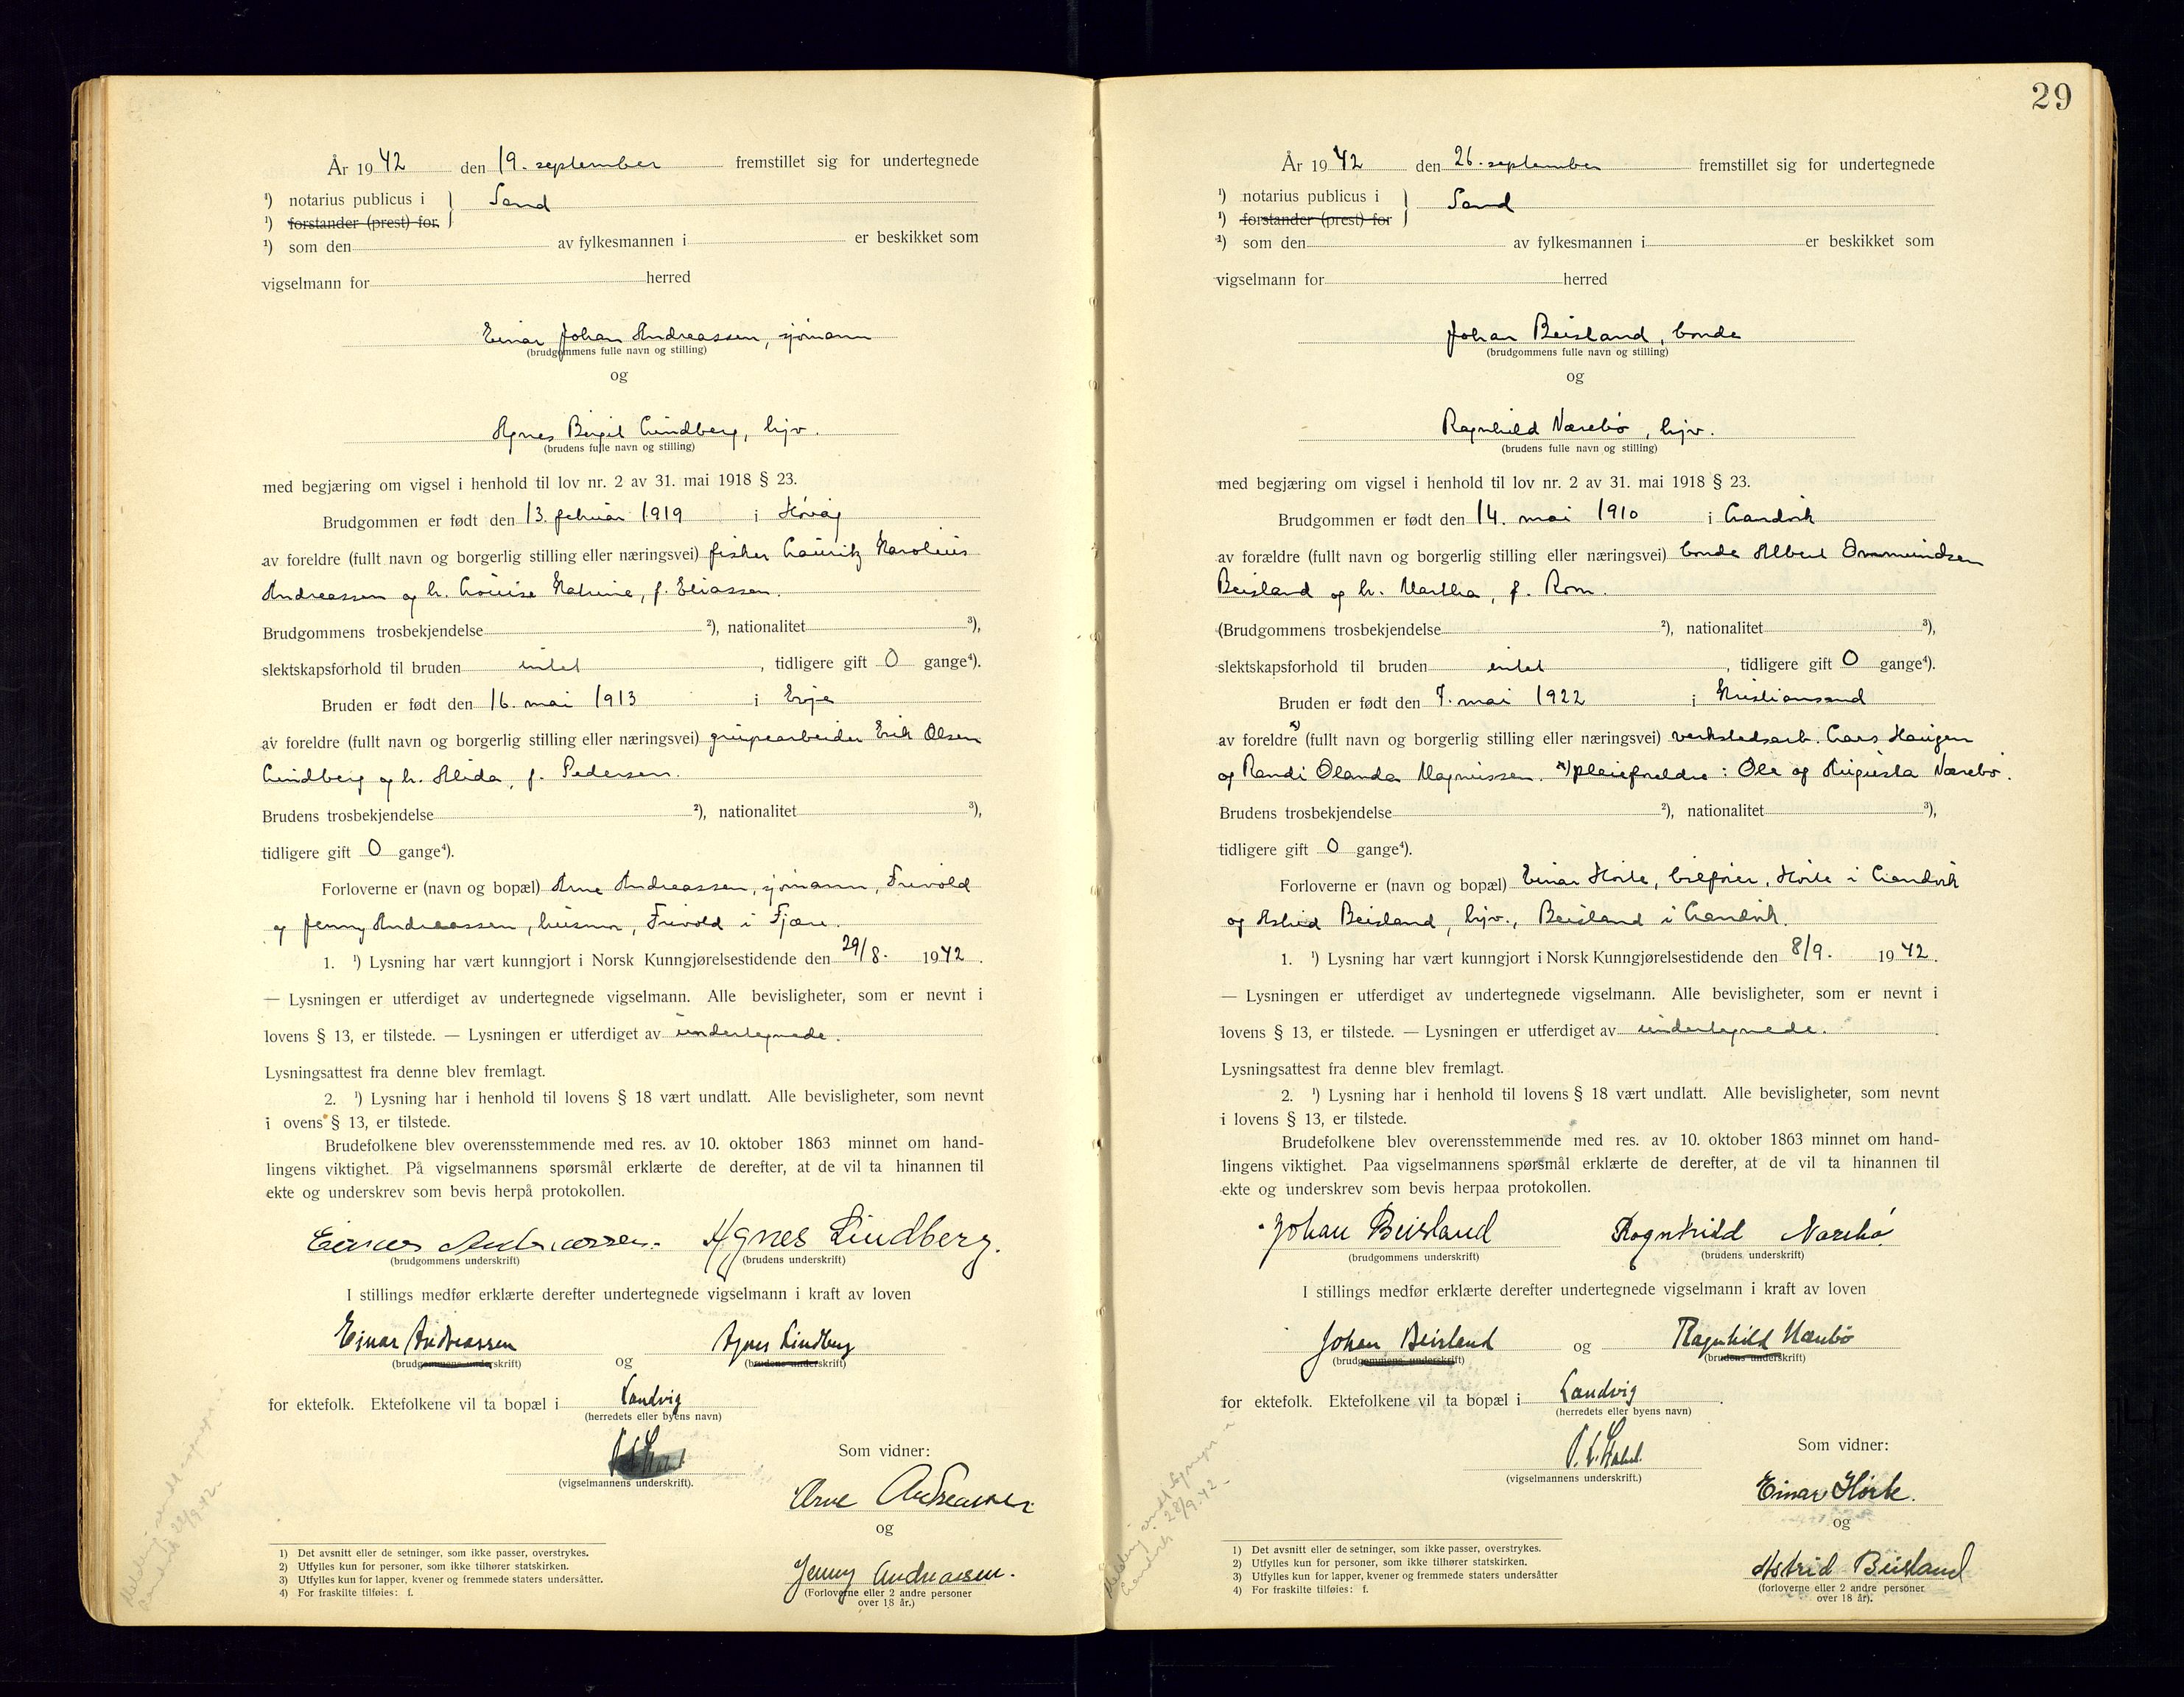 År 1942 den 19. september fremstillet sig for undertegnede
¹) notarius publicus i } Sand
¹) forstander (prest) for
¹) som den av fylkesmannen i er beskikket som
vigselmann for herred
Einar Johan Andreassen, sjömann
(brudgommens fulle navn og stilling)
og
Agnes Birgit Lindberg, hjv.
(brudens fulle navn og stilling)
med begjæring om vigsel i henhold til lov nr. 2 av 31. mai 1918 § 23.
Brudgommen er født den 13. februar 1919 i Høvåg
av foreldre (fullt navn og borgerlig stilling eller næringsvei) fisker Lauritz Karolius
Andreassen og h. Louise Katrine, f. Eliassen.
Brudgommens trosbekjendelse ²), nationalitet ³),
slektskapsforhold til bruden intet, tidligere gift 0 gange⁴).
Bruden er født den 16. mai 1913 i Evje
av foreldre (fullt navn og borgerlig stilling eller næringsvei) grubearbeider Erik Olsen
Lindberg og h. Alida, f. Pedersen.
Brudens trosbekjendelse ²), nationalitet ³),
tidligere gift 0 gange⁴).
Forloverne er (navn og bopæl) Arne Andreassen, sjömann, Frivold
og Jenny Andreassen, husmor, Frivold i Fjære.
1. ¹) Lysning har vært kunngjort i Norsk Kunngjørelsestidende den 29/8. 1942.
— Lysningen er utferdiget av undertegnede vigselmann. Alle bevisligheter, som er nevnt i
lovens § 13, er tilstede. — Lysningen er utferdiget av undertegnede.
Lysningsattest fra denne blev fremlagt.
2. ¹) Lysning har i henhold til lovens § 18 vært undlatt. Alle bevisligheter, som nevnt
i ovens § 13, er tilstede.
Brudefolkene blev overensstemmende med res. av 10. oktober 1863 minnet om hand-
lingens viktighet. På vigselmannens spørsmål erklærte de derefter, at de vil ta hinannen til
ekte og underskrev som bevis herpå protokollen.
Einar Andreassen. Agnes Lindberg.
(brudgommens underskrift) (brudens underskrift)
I stillings medfør erklærte derefter undertegnede vigselmann i kraft av loven
Einar Andreassen og Agnes Lindberg
(brudgommens underskrift) (brudens underskrift)
for ektefolk. Ektefolkene vil ta bopæl i Landvig
(herredets eller byens navn)
Som vidner:
(vigselmannens underskrift).
Arne Andreassen
og
Jenny Andreassen.
(Forloverne eller 2 andre personer
over 18 år.)
1) Det avsnitt eller de setninger, som ikke passer, overstrykes.
2) Utfylles kun for personer, som ikke tilhører statskirken.
3) Utfylles kun for lapper, kvener og fremmede staters undersåtter.
4) For fraskilte tilføies: f.
29
År 1942 den 26. september fremstillet sig for undertegnede
¹) notarius publicus i } Sand
¹) forstander (prest) for
¹) som den av fylkesmannen i er beskikket som
vigselmann for herred
Johan Beisland, bonde
(brudgommens fulle navn og stilling)
og
Ragnhild Nærebö, hjv.
(brudens fulle navn og stilling)
med begjæring om vigsel i henhold til lov nr. 2 av 31. mai 1918 § 23.
Brudgommen er født den 14. mai 1910 i Landvik
av forældre (fullt navn og borgerlig stilling eller næringsvei) bonde Albert
Beisland og h. Martha, f. Rom.
(Brudgommens trosbekjendelse ²), nationalitet ³),
slektskapsforhold til bruden intet, tidligere gift 0 gange⁴).
Bruden er født den 7. mai 1922 i Kristiansand
av foreldre ˣ) (fullt navn og borgerlig stilling eller næringsvei) verkstedsarb. Lars Haugen
og Randi Olanda Magnussen. ˣ) pleieforeldre: Ole og Augusta Nærebö.
Brudens trosbekjendelse ²), nationalitet ³),
tidligere gift 0 gange⁴).
Forloverne er (navn og bopæl) Einar Hörte, bilförer, Hörte i Landvik
og Astrid Beisland, hjv., Beisland i Landvik.
1. ¹) Lysning har vært kunngjort i Norsk Kunngjørelsestidende den 8/9. 1942.
— Lysningen er utferdiget av undertegnede vigselmann. Alle bevisligheter, som er nevnt i
lovens § 13, er tilstede. — Lysningen er utferdiget av undertegnede.
Lysningsattest fra denne blev fremlagt.
2. ¹) Lysning har i henhold til lovens § 18 vært undlatt. Alle bevisligheter, som nevnt
i lovens § 13, er tilstede.
Brudefolkene blev overensstemmende med res. av 10. oktober 1863 minnet om hand-
lingens viktighet. Paa vigselmannens spørsmål erklærte de derefter, at de vil ta hinannen til
ekte og underskrev som bevis herpaa protokollen.
Johan Beisland Ragnhild Nærebö
(brudgommens underskrift) (brudens underskrift)
I stillings medfør erklærte derefter undertegnede vigselmann i kraft av loven
Johan Beisland og Ragnhild Nærebö
(brudgommens underskrift) (brudens underskrift)
for ektefolk. Ektefolkene vil ta bopæl i Landvig.
(herredets eller byens navn)
Som vidner:
(vigselmannens underskrift.)
Einar Hörte.
og
Astrid Beisland
(forloverne eller 2 andre personer
over 18 år).
1) Det avsnitt eller de setninger, som ikke passer, overstrykes.
2) Utfylles kun for personer, som ikke tilhører statskirken.
3) Utfylles kun for lapper, kvener og fremmede staters undersåtter
4) For fraskilte tilføies: f.